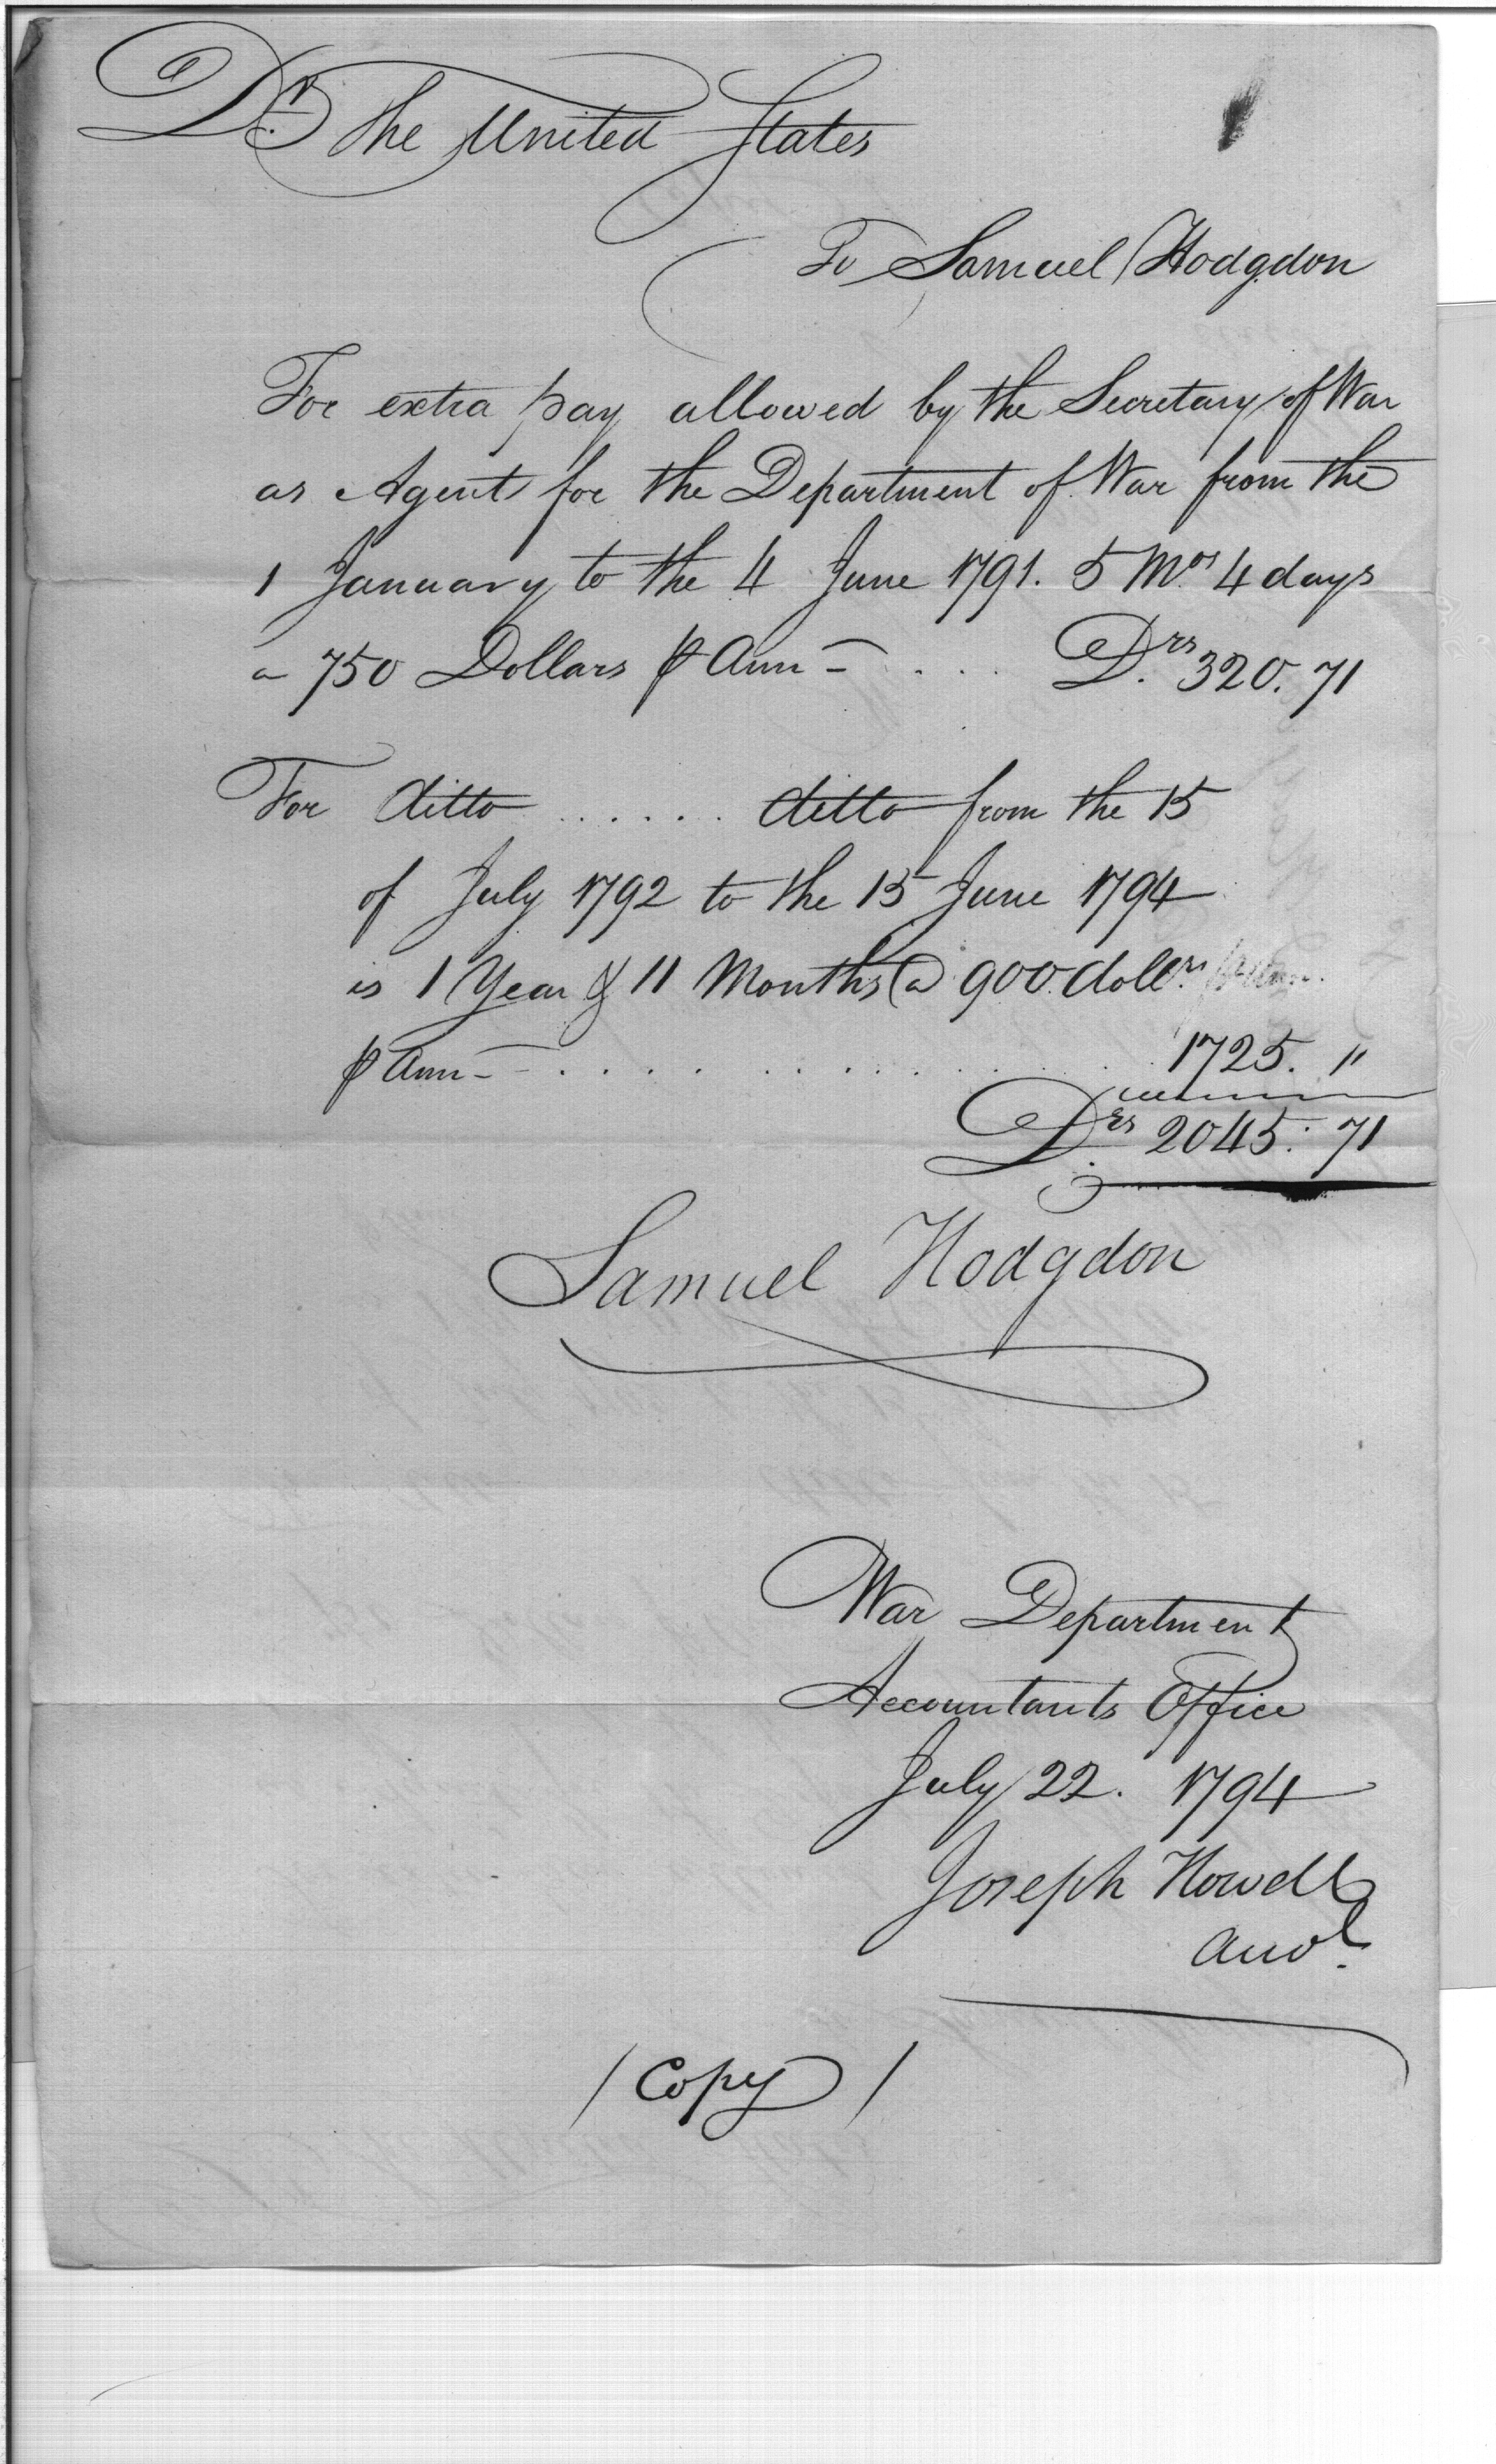 Dr. The United States
To Samuel Hodgdon
For extra pay allowed by the Secretary of War
as Agent for the Department of War from the
1 January to the 4 June 1791. 5 Mos. 4 days
a 750 Dollars ⅌ Ann - . . . Drs. 320. 71
For ditto . . . . . . ditto from the 15
of July 1792 to the 15 June 1794
is 1 Year & 11 Months @ 900 dollrs.
⅌ Ann - . . . . . . . . . . . . 1725. "
Drs. 2045. 71
Samuel Hodgdon
War Department
Accountants Office
July 22. 1794
Joseph Howell
/ Copy /